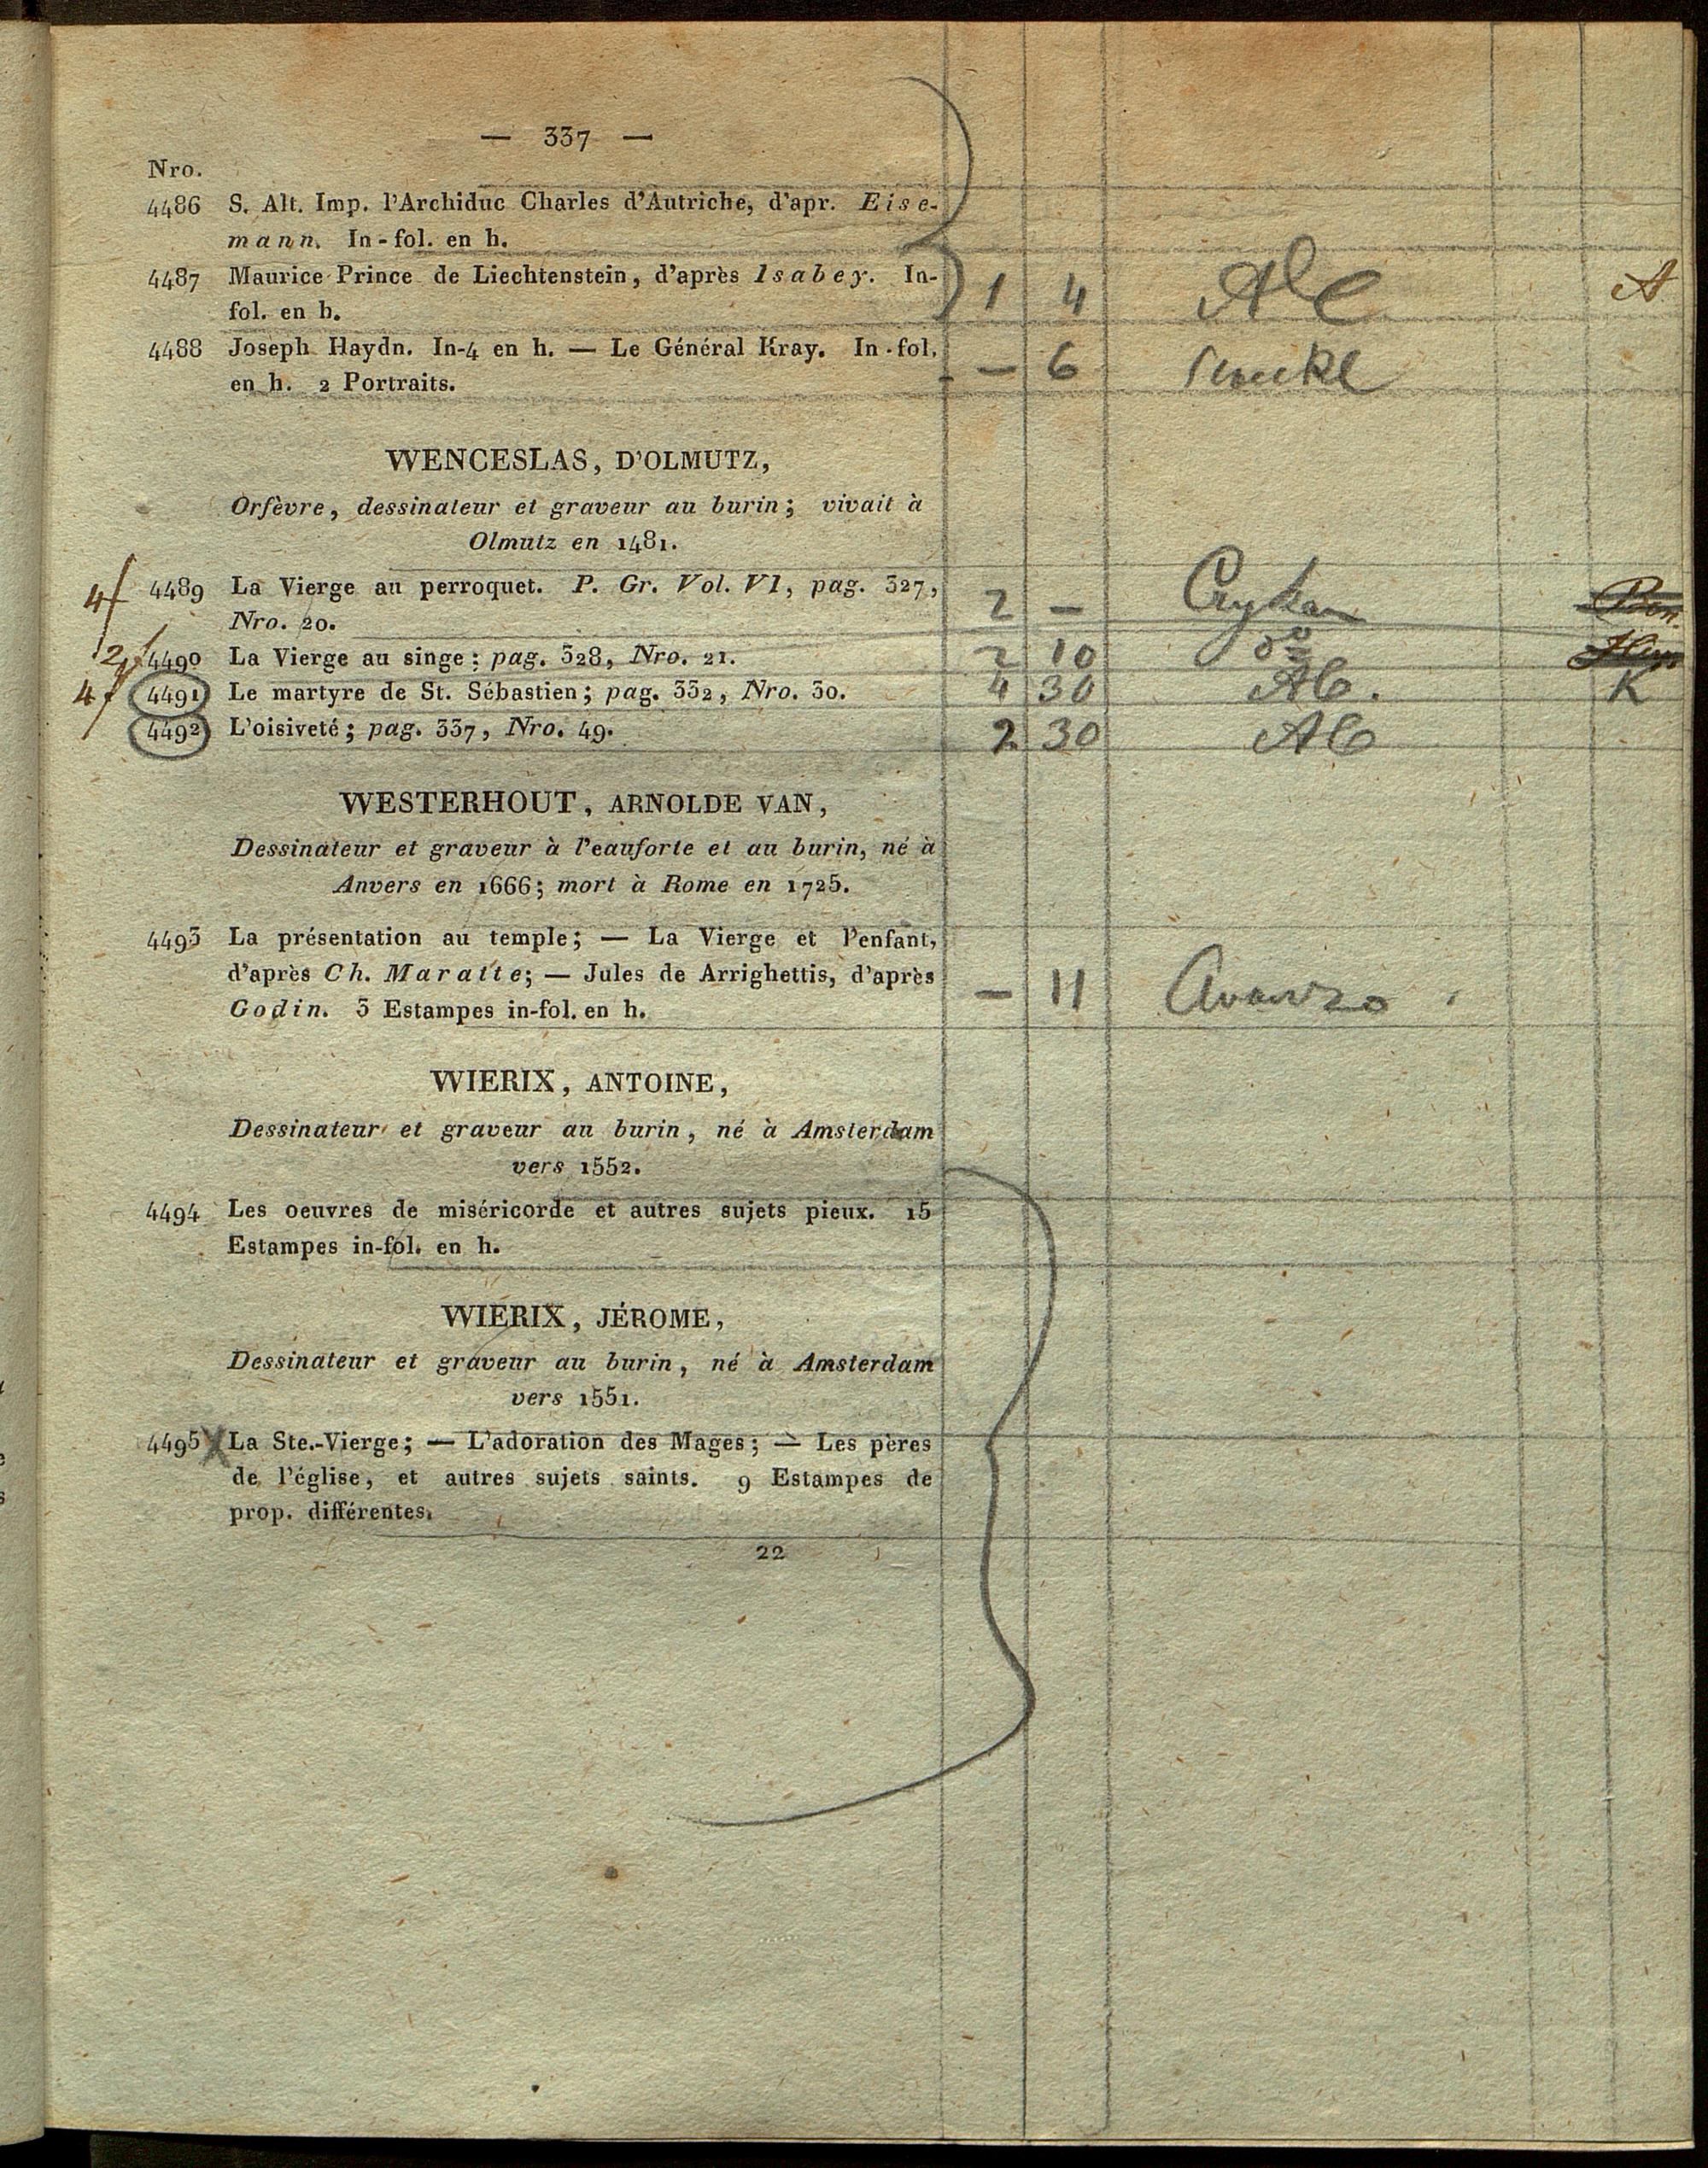 — 337 —
Nro.
4486 S. Alt. Imp. l'Archiduc Charles d'Autriche, d'apr. Eise-
mann. In-fol. en h.
4487 Maurice Prince de Liechtenstein, d'après Isabey. In-
fol. en h. 1 4 A
4488 Joseph Haydn. In-4 en h. — Le Général Kray. In-fol.
en h. 2 Portraits. — 6
WENCESLAS, D'OLMUTZ,
Orfèvre, dessinateur et graveur au burin; vivait à
Olmutz en 1481.
4f 4489 La Vierge au perroquet. P. Gr. Vol. VI, pag. 327,
Nro. 20. 2 —
12f 4490 La Vierge au singe; pag. 328, Nro. 21. 2 10 do
4f 4491 Le martyre de St. Sébastien; pag. 332, Nro. 30. 4 30 Alb. K
4492 L'oisiveté; pag. 337, Nro. 49. 2 30 Alb
WESTERHOUT, ARNOLDE VAN,
Dessinateur et graveur à l'eauforte et au burin, né à
Anvers en 1666; mort à Rome en 1725.
4493 La présentation au temple; — La Vierge et l'enfant,
d'après Ch. Maratte; — Jules de Arrighettis, d'après
Godin. 3 Estampes in-fol. en h. — 11 Avanzo
WIERIX, ANTOINE,
Dessinateur et graveur au burin, né à Amsterdam
vers 1552.
4494 Les oeuvres de miséricorde et autres sujets pieux. 15
Estampes in-fol. en h.
WIERIX, JÉROME,
Dessinateur et graveur au burin, né à Amsterdam
vers 1551.
4495 X La Ste.-Vierge; — L'adoration des Mages; — Les pères
de l'église, et autres sujets saints. 9 Estampes de
prop. différentes.
22